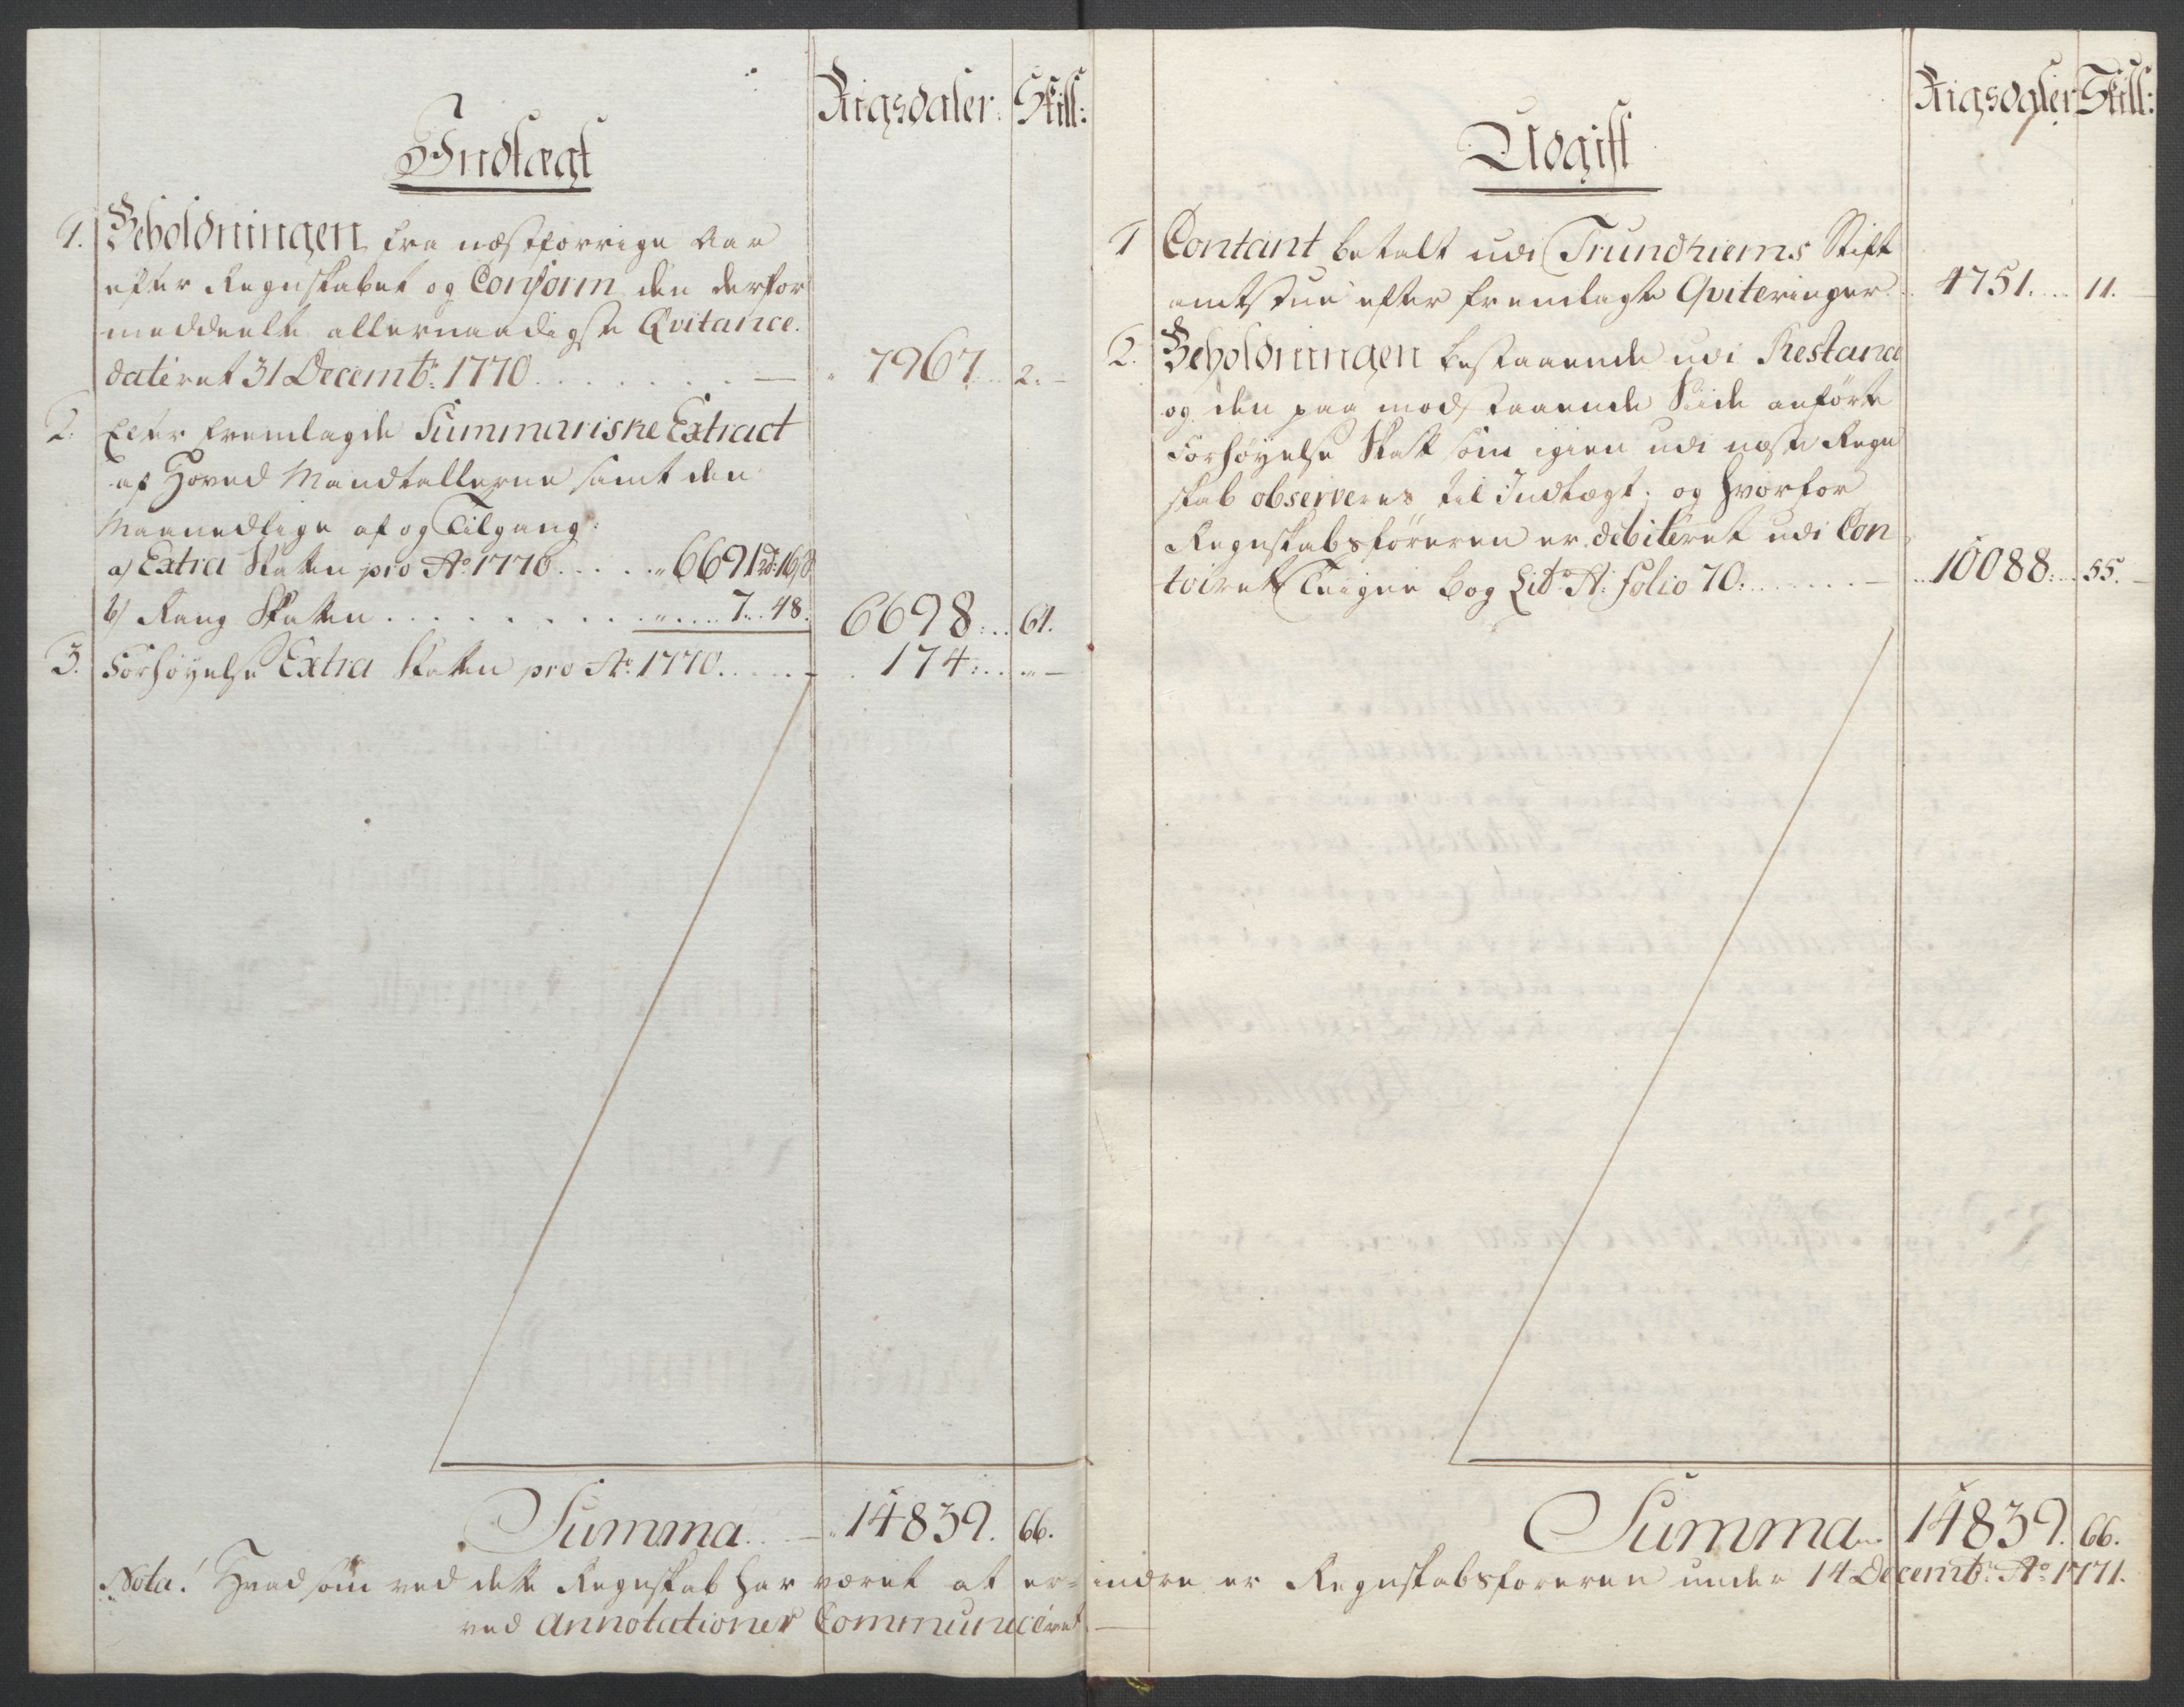 Rigsdaler. Skill:
Indtægt
1. Beholdningen fra næstforrige Aar
efter Regnskabet og Conform den derfor
meddeelte allernaadigste Qvitance.
dateret 31 Decembr: 1770. 7967. 2.
2. Efter fremlagde Summariske Extract
af Hoved Mandtallerne samt den
Maanedlige af og Tilgang:
a) Extra Skatten pro Ao. 1770. 6691 rd: 16 s.
b) Rang Skatten. 7. 48. 6698. 61.
3. Forhøyelse Extra Skatten pro Ao. 1770. 174. "
Summa. 14839. 66.
Rigsdaler Skill:
Udgift
1 Contant betalt udi Trundhiems Stift
amtstue efter fremlagte Qviteringer. 4751. 11.
2. Beholdningen bestaaende udi Restance
og den paa modstaaende Siide anførte
Forhøyelse Skatt som igien udi næste Regn
skab observeres til Indtægt; og hvorfor
Regnskabsføreren er debiteret udi Con
toirets bog Litr. A: folio 70. 10088. 55.
Summa 14839. 66.
Nota! Hvad som ved dette Regnskab har været at er=indre er Regnskabsføreren under 14 Decembr: Ao. 1771.
ved Annotationer Communiceret.